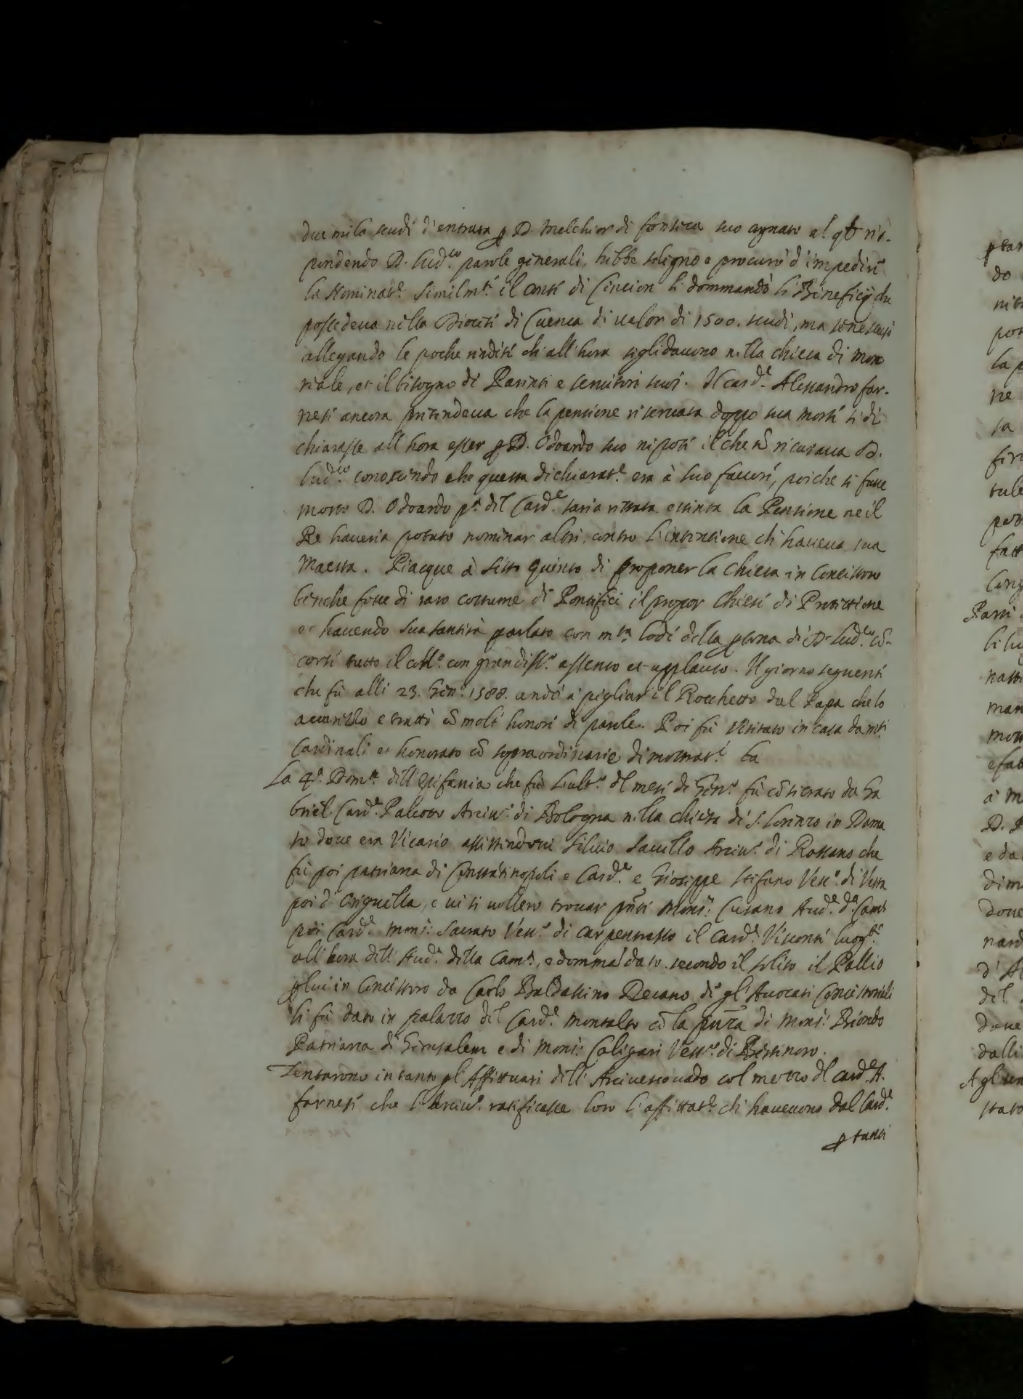 due mila scudi d'entrata p D. Melchior di fonseca suo cognato al q̃le ris-
pondendo D. Lud.co parole generali, hebbe sdegno e procurò d'impedire
la Nominat.e Similm.te il conte di Cincion li dommandò li Beneficÿ che
possedeva nella Diocesi di Cuenca di valor di 1500. scudi, ma
allegando le poche rendite ch'all'hora nella chiesa di Mon
reale, et il bisogno di Parenti e servitori suoi. Il Card.le Alessandro far-
nese ancora pretendeva che la pensione riservata doppo sua morte si di
chiarasse all'hora esser p D. Odoardo suo nipote il che nõ ricusava D.
Lud.co conoscendo che questa dichiarat.e era à suo favore, poiche se fusse
morto D. Odoardo p.a del Card.le saria restata estinta la Pensione ne il
Re haveria potuto nominar altri contro l'intentione ch'haveva sua
Maestà. Piacque à Sisto Quinto di proponer la Chiesa in Concistoro
benche fosse di raro costume di Pontefici il propor Chiese di Protettione
et havendo sua santità parlato con m.te lodi della p̱sona di D. Lud.co cõ-
corse tutto il coll.o con grandiss.o assenso et applauso. Il giorno seguente
che fù alli 23. Gen.o 1588. andò a pigliar il Rocchetto dal Papa che lo
accarezzò e trattò cõ molti honori di parole. Poi fù visitato in casa da m.ti
Cardinali et honorato cõ sopraordinarie dimostrat.i
La 4.a Dom.ca dell'Epifania che fù l'ult.o del mese di Gen.o fù cõsecrato da Ga
briel Card.le Paleotto Arciv.o di Bologna nella chiesa di S. Lorenzo in Dama
so dove era Vicario assistendovi Silvio Savello Arciv.o di Rossano che
fù poi patriarca di Constantinopoli e Card.le e Gioseppe Stefano Vesc.o di Vesta
poi d'Origuella, e vi si vollero trovar p̃nti Mons.r Cusano Aud.e d.a Cam.a
poi Card.le Mons.r Sacrato Vesc.o di Carpentrasso il Card.le Visconti luog.te
all'hora dell'Aud.e della Cam.a, e dommãdato secondo il solito il Pallio
p lui in Concistoro da Carlo Baldassino Decano de gl'Avocati Concistoriali
li fù dato in palazzo del Card.le Montalto cõ la p̃ñza di Mons.r Biondo
Patriarca di Gerusalem e di Mons.r Caligari Vesc.o di Bertinoro.
Tentarono in tanto gl'Affittuari dell'Arcivescovado col mezzo del Card.le A.
farnese che l'Arciv.o ratificasse loro l'affittat.e ch'havevano dal Card.le
p tanti